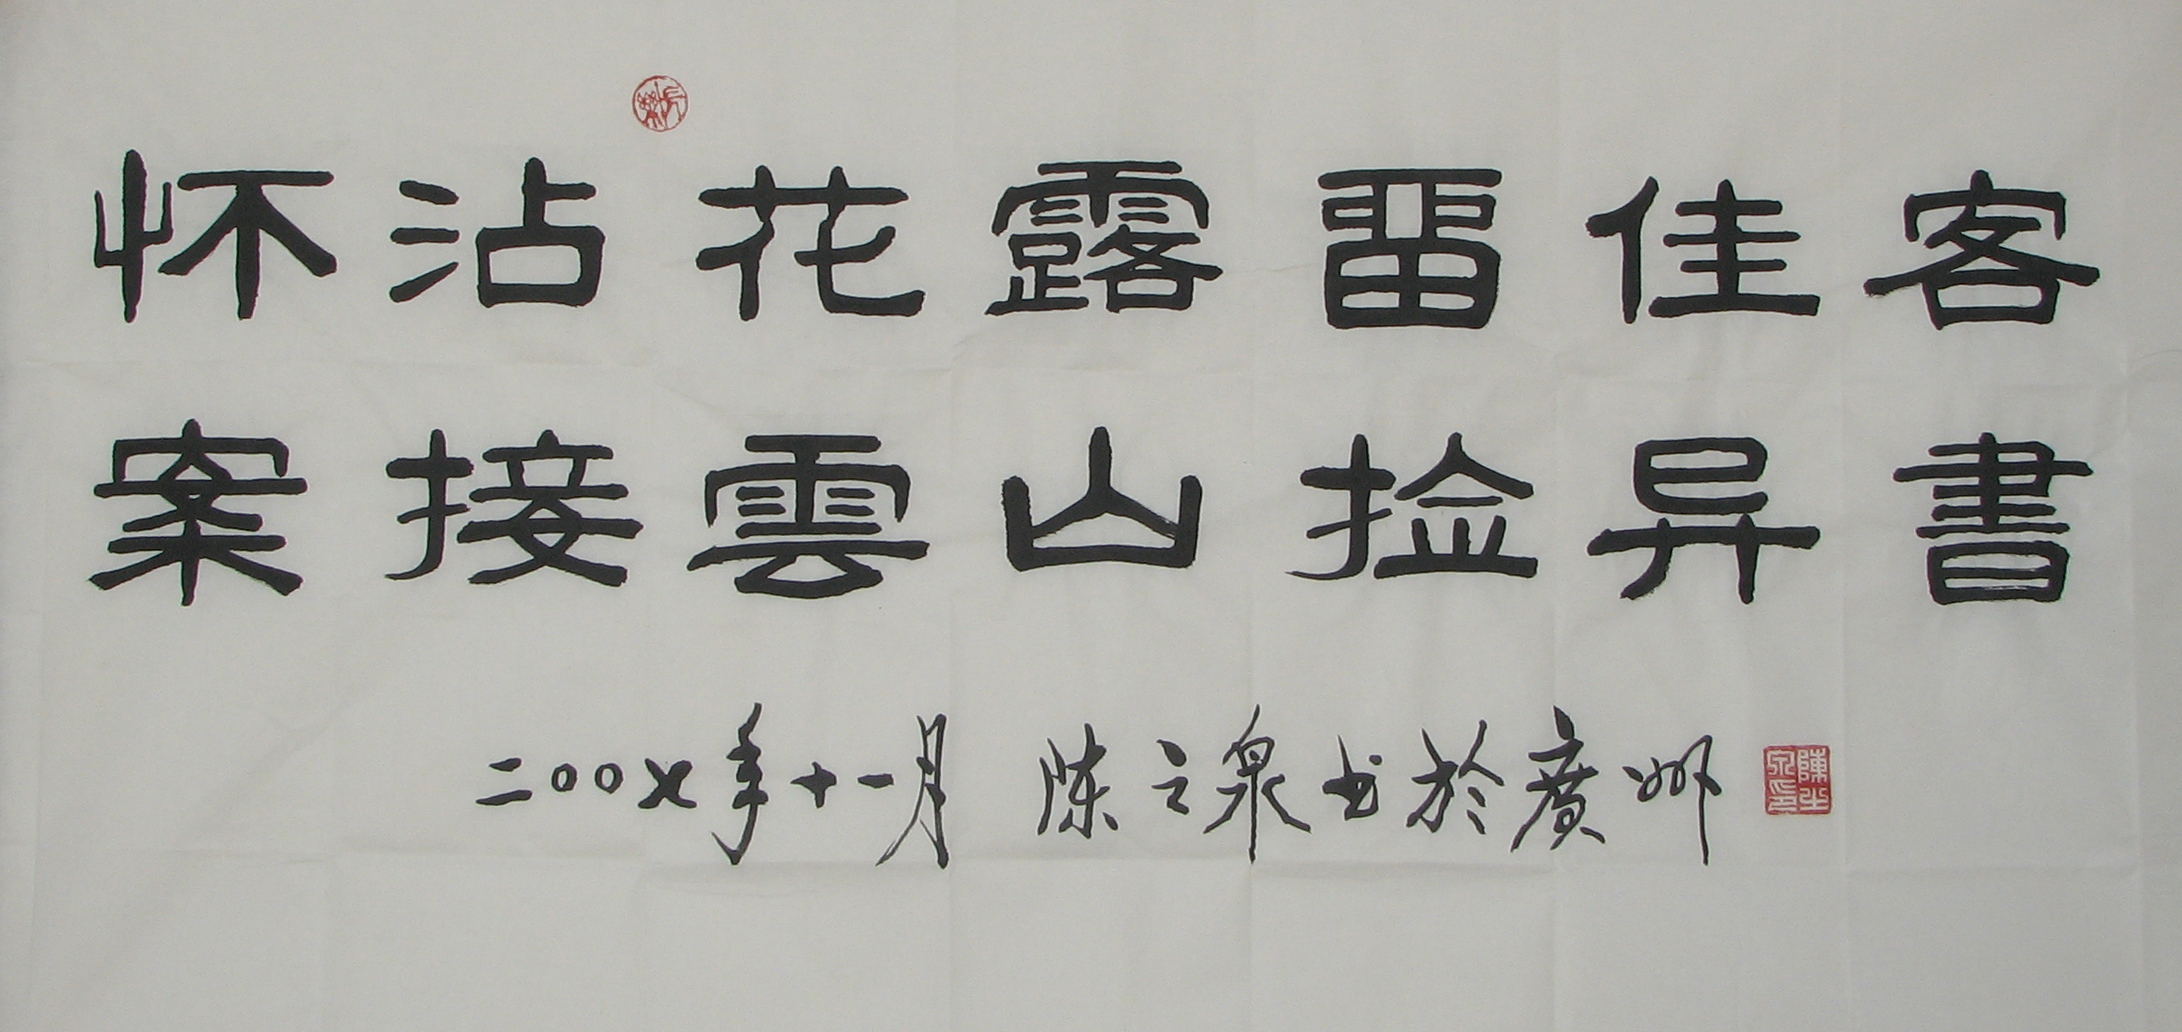 怀沾花露畱佳客
案接雲山捡异書
二〇〇七年十一月 陈之泉书於廣州
陳之泉印